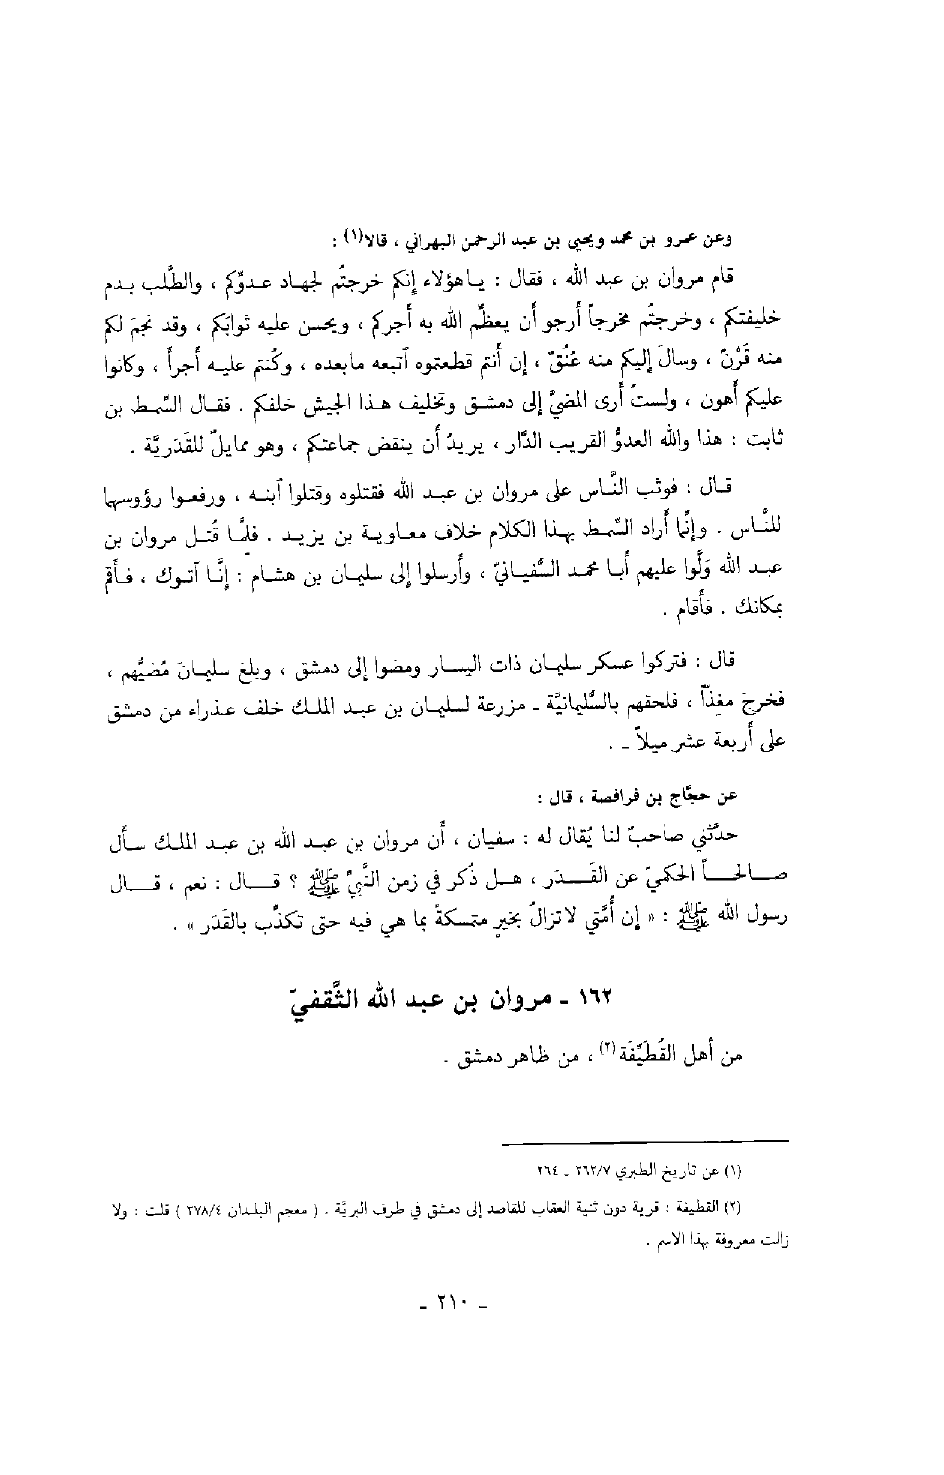 وعن عمرو بن محمد ويحيى بن عبد الرحمن البهراني ، قالا(١) :
قام مروان بن عبد الله ، فقال : ياهؤلاء إنكم خرجتُم لجهاد عدوّكم ، والطَّلب بدم
خليفتكم ، وخرجتُم مخرجاً أرجو أن يعظّم الله به أجركم ، ويحسن عليه ثوابَكم ، وقد نجمَ لكم
منه قَرْنٌ ، وسالَ إليكم منه عُنُقٌ ، إن أنتم قطعتموه أتبعه مابعده ، وكُنتم عليه أجرأ ، وكانوا
عليكم أهون ، ولستُ أرى المضيَّ إلى دمشق وتخليف هذا الجيش خلفكم . فقال السِّمط بن
ثابت : هذا والله العدوُّ القريب الدَّار ، يريدُ أن ينقض جماعتكم ، وهو ممايلٌ للقَدَريَّة .
قال : فوثب النَّاس على مروان بن عبد الله فقتلوه وقتلوا آبنه ، ورفعوا رؤوسها
للنَّاس . وإنَّما أراد السِّمط بهذا الكلام خلاف معاوية بن يزيد . فلمَّا قُتل مروان بن
عبد الله وَلَّوا عليهم أبا محمد السُّفيانيّ ، وأرسلوا إلى سليمان بن هشام : إنَّا آتوك ، فأقم
بمكانك . فأقام .
قال : فتركوا عسكر سليمان ذات اليسار ومضوا إلى دمشق ، وبلغ سليمانَ مُضيُّهم ،
فخرجَ مغذّاً ، فلحقهم بالسُّليمانيَّة ـ مزرعة لسليمان بن عبد الملك خلف عذراء من دمشق
على أربعة عشر ميلاً ـ .
عن حجَّاج بن فرافصة ، قال :
حدَّثني صاحبٌ لنا يُقال له : سفيان ، أن مروان بن عبد الله بن عبد الملك سأل
صالحاً الحكميّ عن القَدَر ، هل ذُكر في زمن النَّبيّ ﷺ ؟ قال : نعم ، قال
رسول الله ﷺ : « إن أُمَّتي لاتزالُ بخيرٍ متمسكةً بما هي فيه حتى تكذّب بالقَدَر » .
١٦٢ ـ مروان بن عبد الله الثَّقفيّ
من أهل القُطَيِّفَة(٢) ، من ظاهر دمشق .
(١) عن تاريخ الطبري ٢٦٢/٧ ـ ٢٦٤
(٢) القطيفة : قرية دون ثنية العقاب للقاصد إلى دمشق في طرف البريَّة . ( معجم البلدان ٣٧٨/٤ ) قلت : ولا
زالت معروفة بهذا الاسم .
ـ ٢١٠ ـ